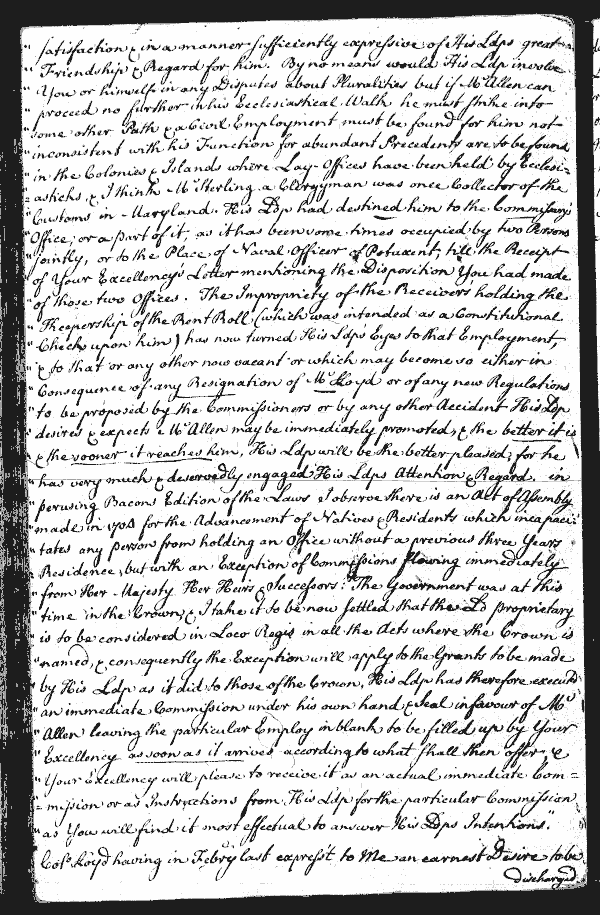 " satisfaction & in a manner sufficiently expressive of His Ldps great
" Friendship & Regard for him. By no means would His Ldp involve
" You or himself in any Disputes about Pluralities but if Mr Allen can
" proceed no further in his Ecclesiastical Walk he must strike into
" some other Path & a Civil Employment must be found for him not
" inconsistent with his Function for abundant Precedents are to be found
" in the Colonies & Islands where Lay-Offices have been held by Ecclesi-
" =asticks & I think Mr Sterling a Clergyman was once Collector of the
" Customs in Maryland. His Ldp had destined him to the Commissary's
" Office, or a part of it, as it has been some times occupied by two Persons
" jointly, or to the Place of Naval Officer of Patuxent, till the Receipt
" of Your Excellency's Letter mentioning the Disposition You had made
" of those two Offices. The Impropriety of the Receivers holding the
" Keepership of the Rent Roll (which was intended as a Constitutional
" Check upon him) has now turned His Ldps Eyes to that Employment,
" & to that or any other now vacant or which may become so either in
" Consequence of any Resignation of Mr Lloyd or of any new Regulations
" to be proposed by the Commissioners or by any other Accident His Ldp
" desires & expects Mr Allen may be immediately promoted, & the better it is
" & the sooner it reaches him, His Ldp will be the better pleased, for he
" has very much & deservedly engaged His Ldps Attention & Regard. in
" perusing Bacons Edition of the Laws I observe there is an Act of Assembly
" made in 1704 for the Advancement of Natives & Residents which incapaci-
" tates any person from holding an Office without a previous three Years
" Residence, but with an Exception of Commissions flowing immediately
" from Her Majesty Her Heirs & Successors: The Government was at this
" time in the Crown, & I take it to be now settled that the Ld Proprietary
" is to be considered in Loco Regis in all the Acts where the Crown is
" named, & consequently the Exception will apply to the Grants to be made
" by His Ldp as it did to those of the Crown, His Ldp has therefore executd
" an immediate Commission under his own hand & Seal in favour of Mr
" Allen leaving the particular Employ in blank to be filled up by Your
" Excellency as soon as it arrives according to what shall then offer, &
" Your Excellency will please to receive it as an actual immediate Com-
" =mission or as Instructions from His Ldp for the particular Commission
" as You will find it most effectual to answer His Ldps Intentions."
Colo. Lloyd having in Febry last expres't to Me an earnest Desire to be
discharged